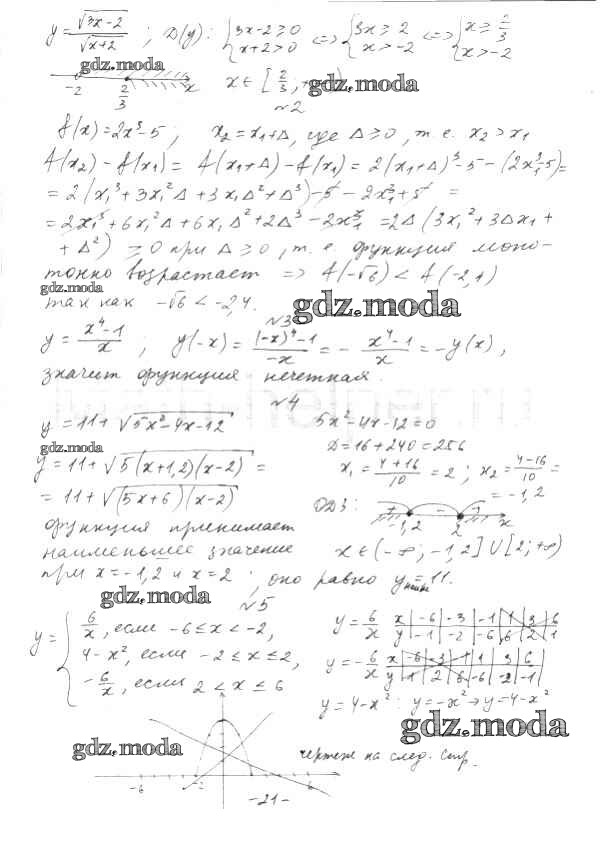 y = √(3x-2) / √(x+2) ; D(y): { 3x-2 ≥ 0, x+2 > 0 <=> { 3x ≥ 2, x > -2 <=> { x ≥ 2/3, x > -2
gdz.moda
-2 2/3 x x ∈ [2/3, +∞)
gdz.moda
№2
f(x) = 2x³-5; x₂ = x₁+Δ, где Δ ≥ 0, т.е. x₂ > x₁
f(x₂) - f(x₁) = f(x₁+Δ) - f(x₁) = 2(x₁+Δ)³-5 - (2x₁³-5) =
= 2(x₁³ + 3x₁²Δ + 3x₁Δ² + Δ³) - 5 - 2x₁³ + 5 =
= 2x₁³ + 6x₁²Δ + 6x₁Δ² + 2Δ³ - 2x₁³ = 2Δ(3x₁² + 3Δx₁ +
+ Δ²) ≥ 0 при Δ ≥ 0, т.е. функция моно-
тонно возрастает => f(-√6) < f(-2,1)
gdz.moda
так как -√6 < -2,4.
gdz.moda
№3
y = (x⁴-1)/x ; y(-x) = ((-x)⁴-1)/(-x) = - (x⁴-1)/x = -y(x),
значит функция нечетная.
№4
y = 11 + √(5x²-4x-12) 5x²-4x-12=0
gdz.moda
D = 16+240 = 256
y = 11 + √(5(x+1,2)(x-2)) = x₁ = (4+16)/10 = 2; x₂ = (4-16)/10 =
= -1,2
= 11 + √((5x+6)(x-2)) ОДЗ: + - + -1,2 2 x
функция принимает
наименьшее значение x ∈ (-∞; -1,2] ∪ [2; +∞)
при x = -1,2 и x = 2; оно равно yнаим = 11.
gdz.moda
№5
y = { 6/x, если -6 ≤ x < -2,
4-x², если -2 ≤ x ≤ 2,
-6/x, если 2 < x ≤ 6
y = 6/x x | -6 | -3 | -1 | 1 | 3 | 6
y | -1 | -2 | -6 | 6 | 2 | 1
y = -6/x x | -6 | -3 | -1 | 1 | 3 | 6
y | 1 | 2 | 6 | -6 | -2 | -1
y = 4-x²: y = -x² → y = 4-x²
gdz.moda
gdz.moda
чертеж на след. стр.
-6 -2 6
-21-